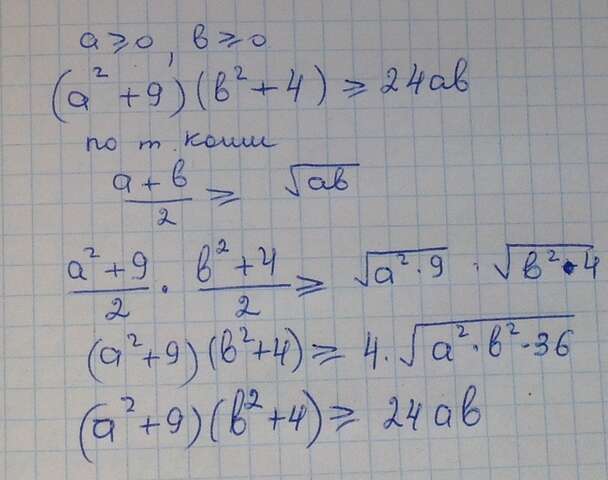 a ⩾ 0, в ⩾ 0
(a² + 9)(в² + 4) ⩾ 24aв
по т. коши
(a + в)/2 ⩾ √(aв)
(a² + 9)/2 · (в² + 4)/2 ⩾ √(a² · 9) · √(в² · 4)
(a² + 9)(в² + 4) ⩾ 4 · √(a² · в² · 36)
(a² + 9)(в² + 4) ⩾ 24aв